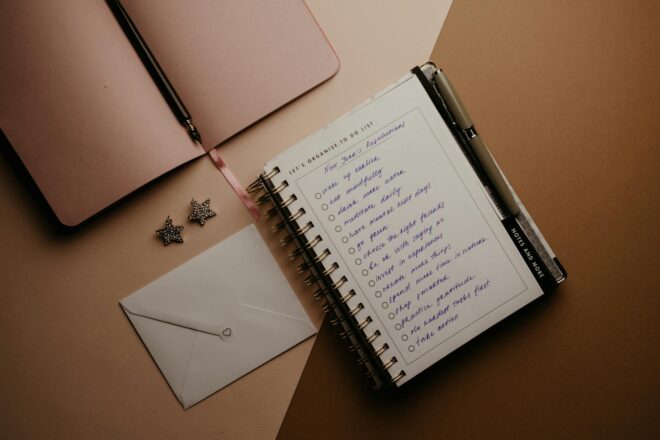 LET'S ORGANISE TO DO LIST
New Year's Resolutions
wake up earlier
eat mindfully
drink more water
meditate daily
have mental reset days
go green
choose the right friends
be ok with saying no
invest in experiences
create more things
spend more time in nature
shop smarter
practice gratitude
do hardest tasks first
take action
NOTES AND MORE